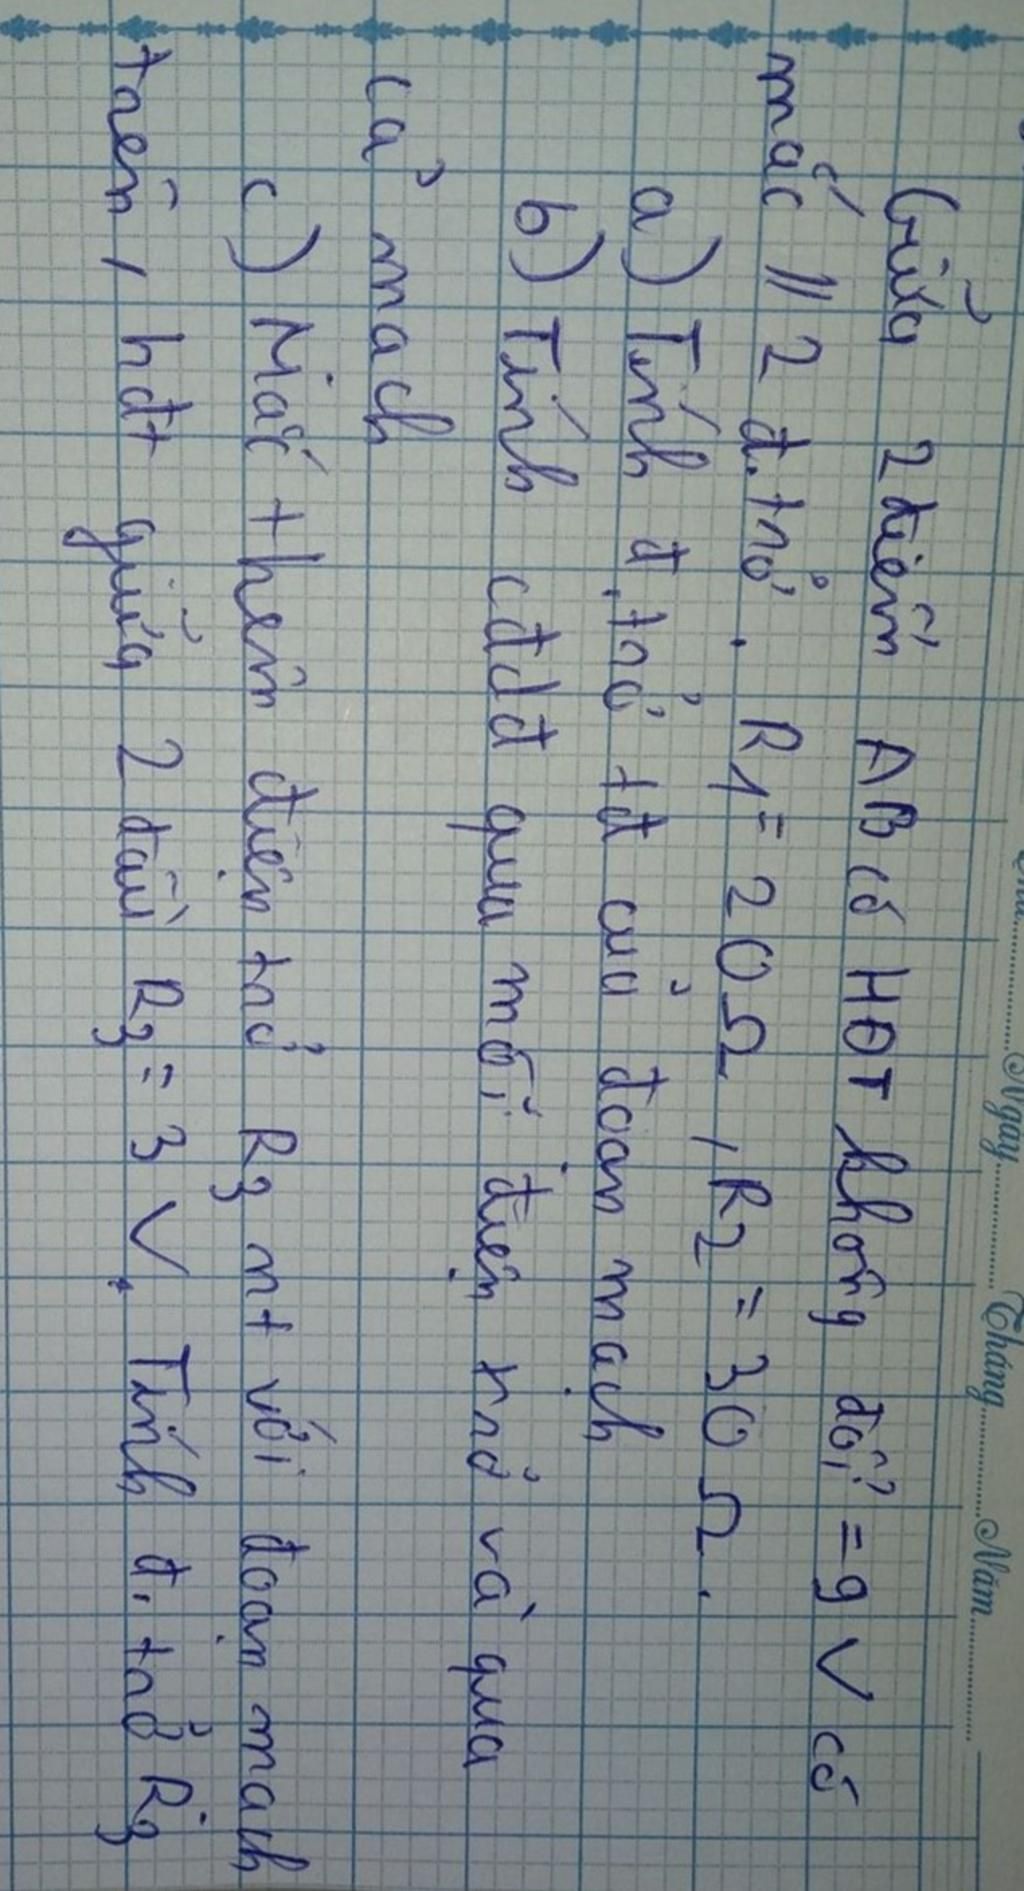 Thứ............Ngày............Tháng............Năm............
Giữa 2 điểm AB có HĐT không đổi = 9 V có
mắc // 2 đ.trở. R1 = 20Ω, R2 = 30Ω.
a) Tính đ.trở tđ của đoạn mạch
b) Tính cđdđ qua mỗi điện trở và qua
cả mạch
c) Mắc thêm điện trở R3 nt với đoạn mạch
trên, hđt giữa 2 đầu R3 = 3 V. Tính đ.trở R3